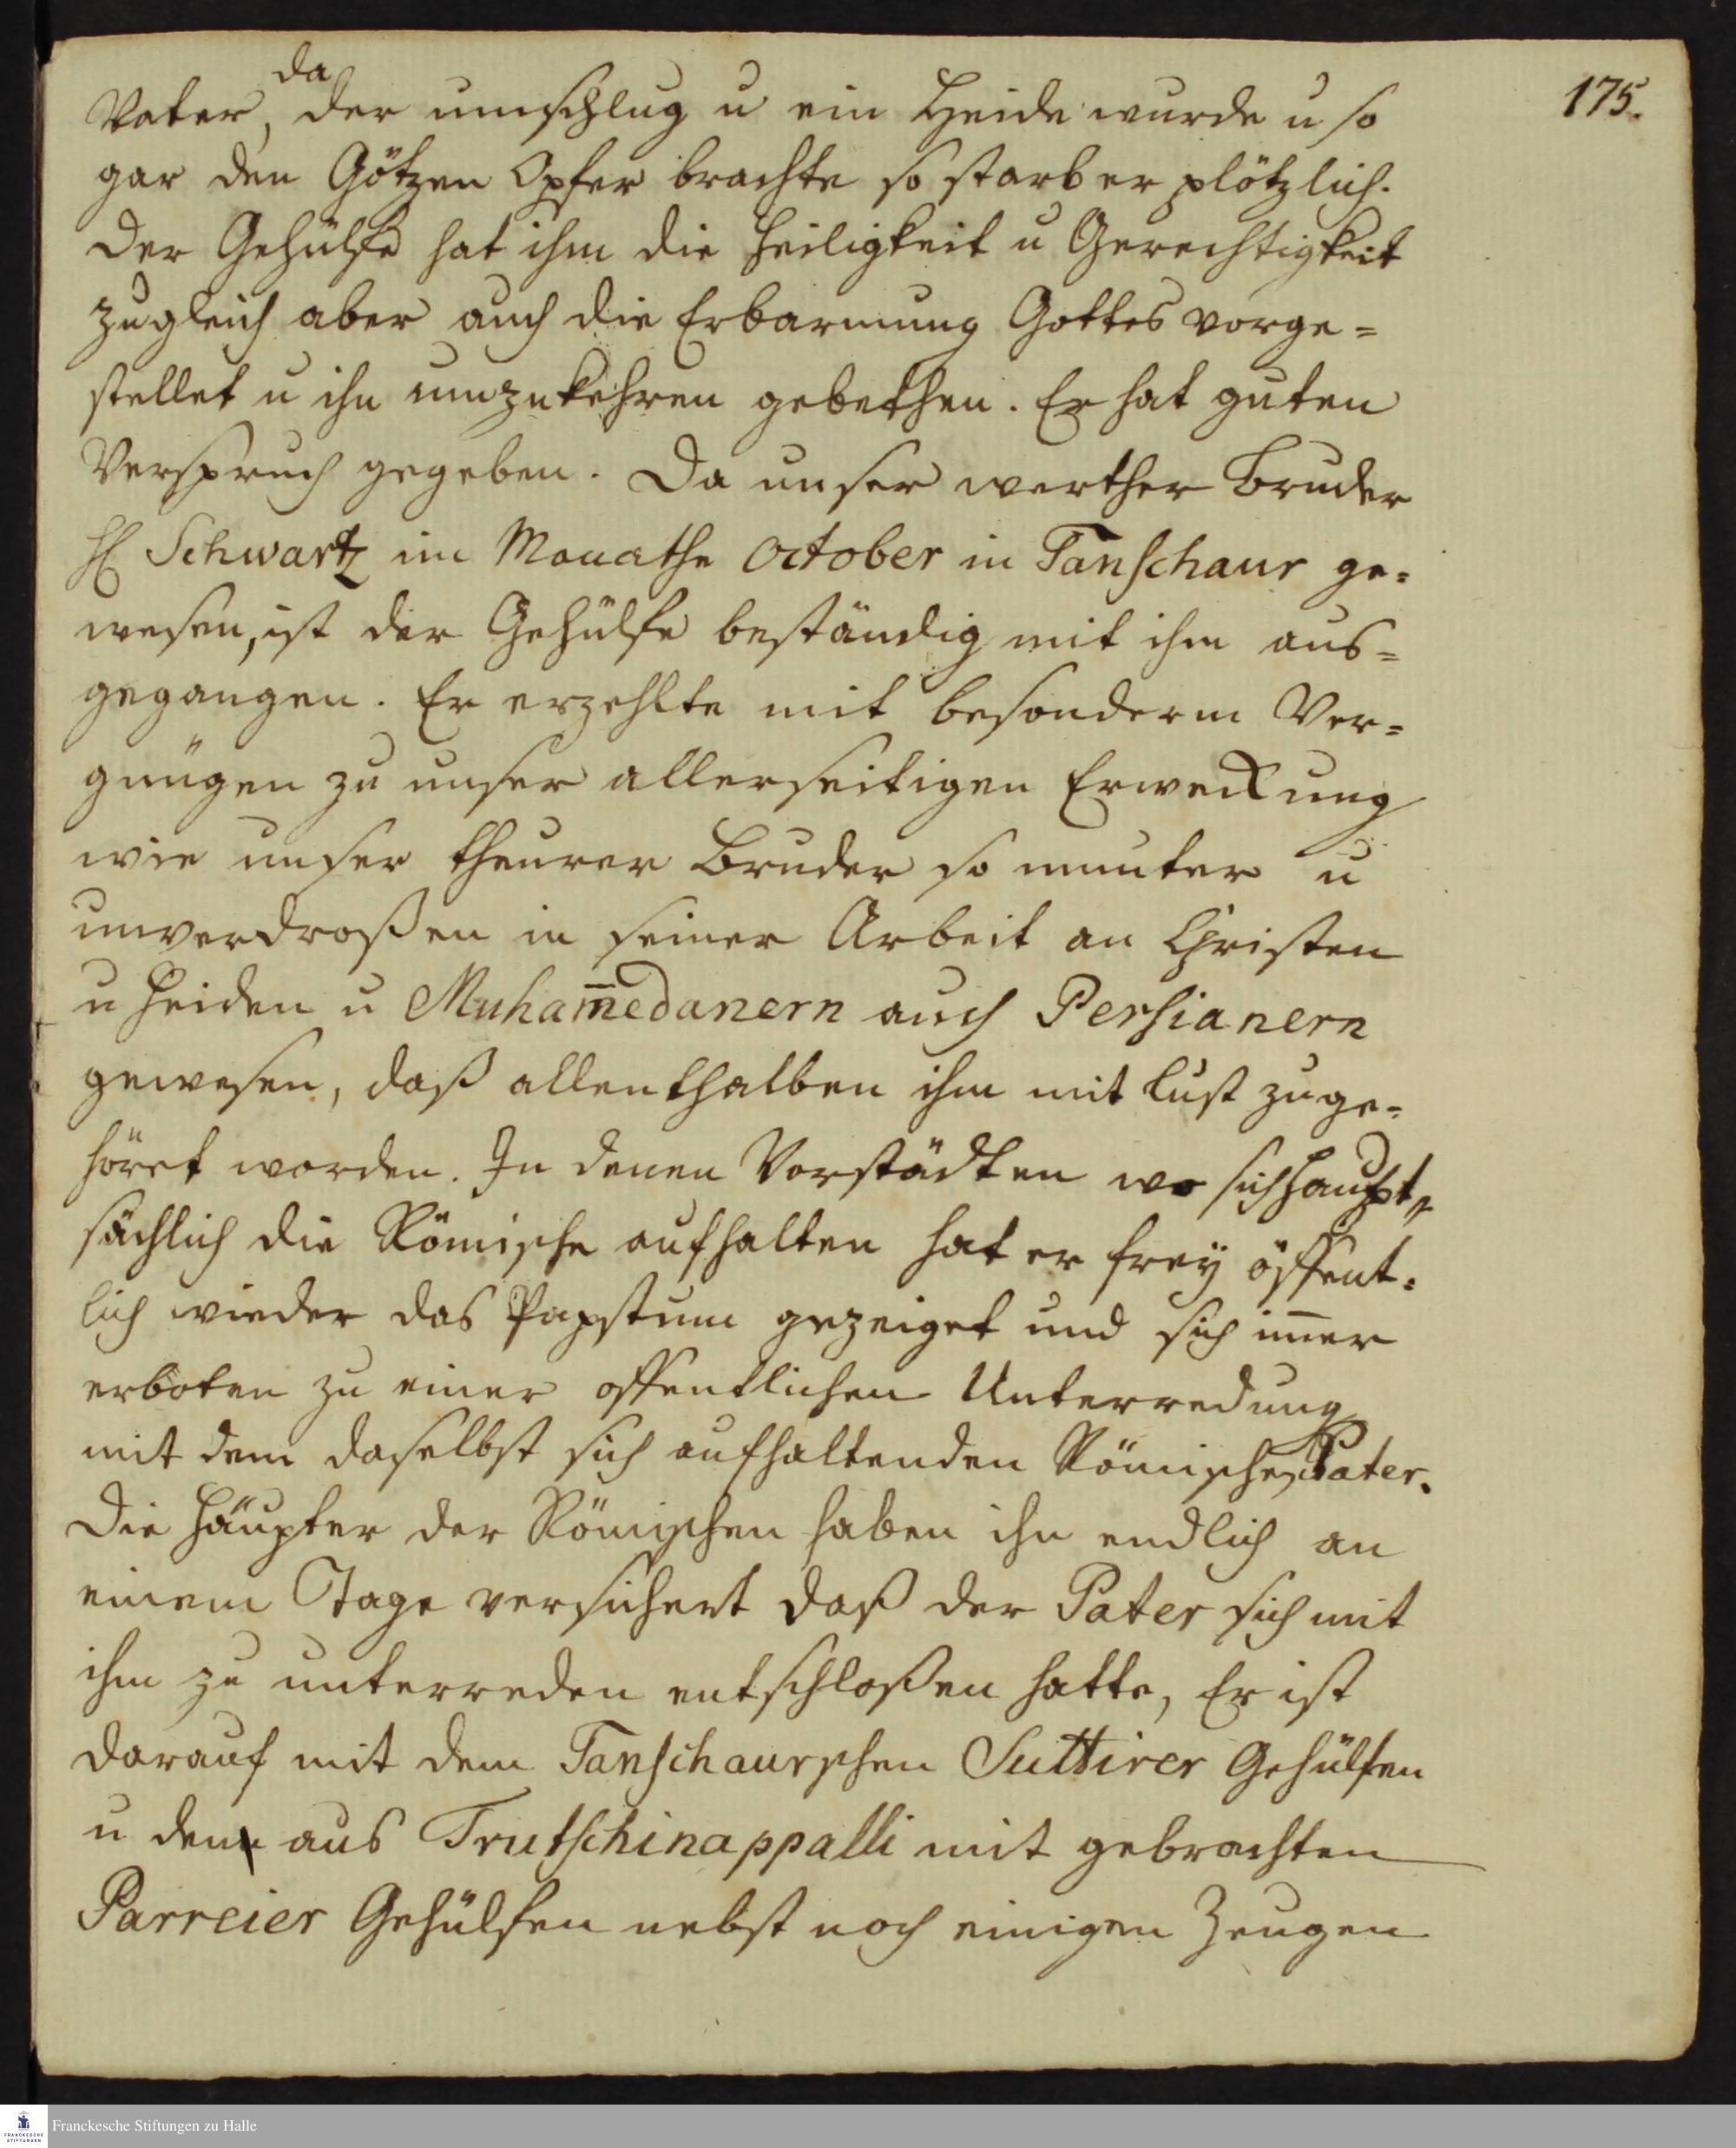 175.
da
Vater, der umschlug u ein Heide wurde u so
gar den Götzen Opfer brachte so starb er plötzlich.
Der Gehülfe hat ihm die Heiligkeit u Gerechtigkeit
zugleich aber auch die Erbarmung Gottes vorge=
stellet u ihn umzukehren gebethen. Er hat guten
Verspruch gegeben. Da unser werther Bruder
H Schwartz im Monathe October in Tanschaur ge=
wesen, ist der Gehülfe beständig mit ihm aus=
gegangen. Er erzehlte mit besonderm Ver=
gnügen zu unser allerseitigen Erweckung
wie unser theurer Bruder so munter u
unverdroßen in seiner Arbeit an Christen
u Heiden u Muham̅edanern auch Persianern
gewesen, daß allenthalben ihm mit Lust zuge=
höret worden. In denen Vorstädten wo sich haupt=
sächlich die Römische aufhalten hat er frey öffent=
lich wieder das Papstum gezeiget und sich im̅er
erboten zu einer offentlichen Unterredung
mit dem daselbst sich aufhaltenden Römischen Pater.
Die Häupter der Römischen haben ihn endlich an
einem Tage versichert daß der Pater sich mit
ihm zu unterreden entschloßen hatte, Er ist
darauf mit dem Tanschaurschen Suttirer Gehülfen
u den aus Trutschinappalli mit gebrachten
Parreier Gehülfen nebst noch einigen Zeugen
Franckesche Stiftungen zu Halle
FRANCKESCHE
STIFTUNGEN